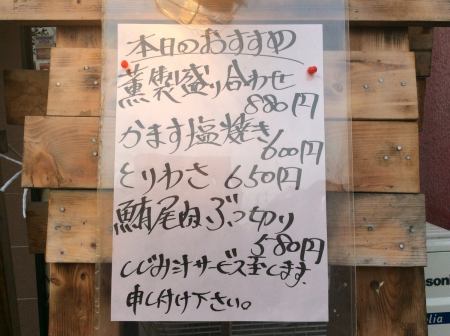 本日のおすすめ
薫製盛り合わせ
880円
かます塩焼き
600円
とりわさ 650円
鮪尾肉ぶつ切り
580円
しじみ汁サービス致します。
申し付け下さい。
sonic
elia